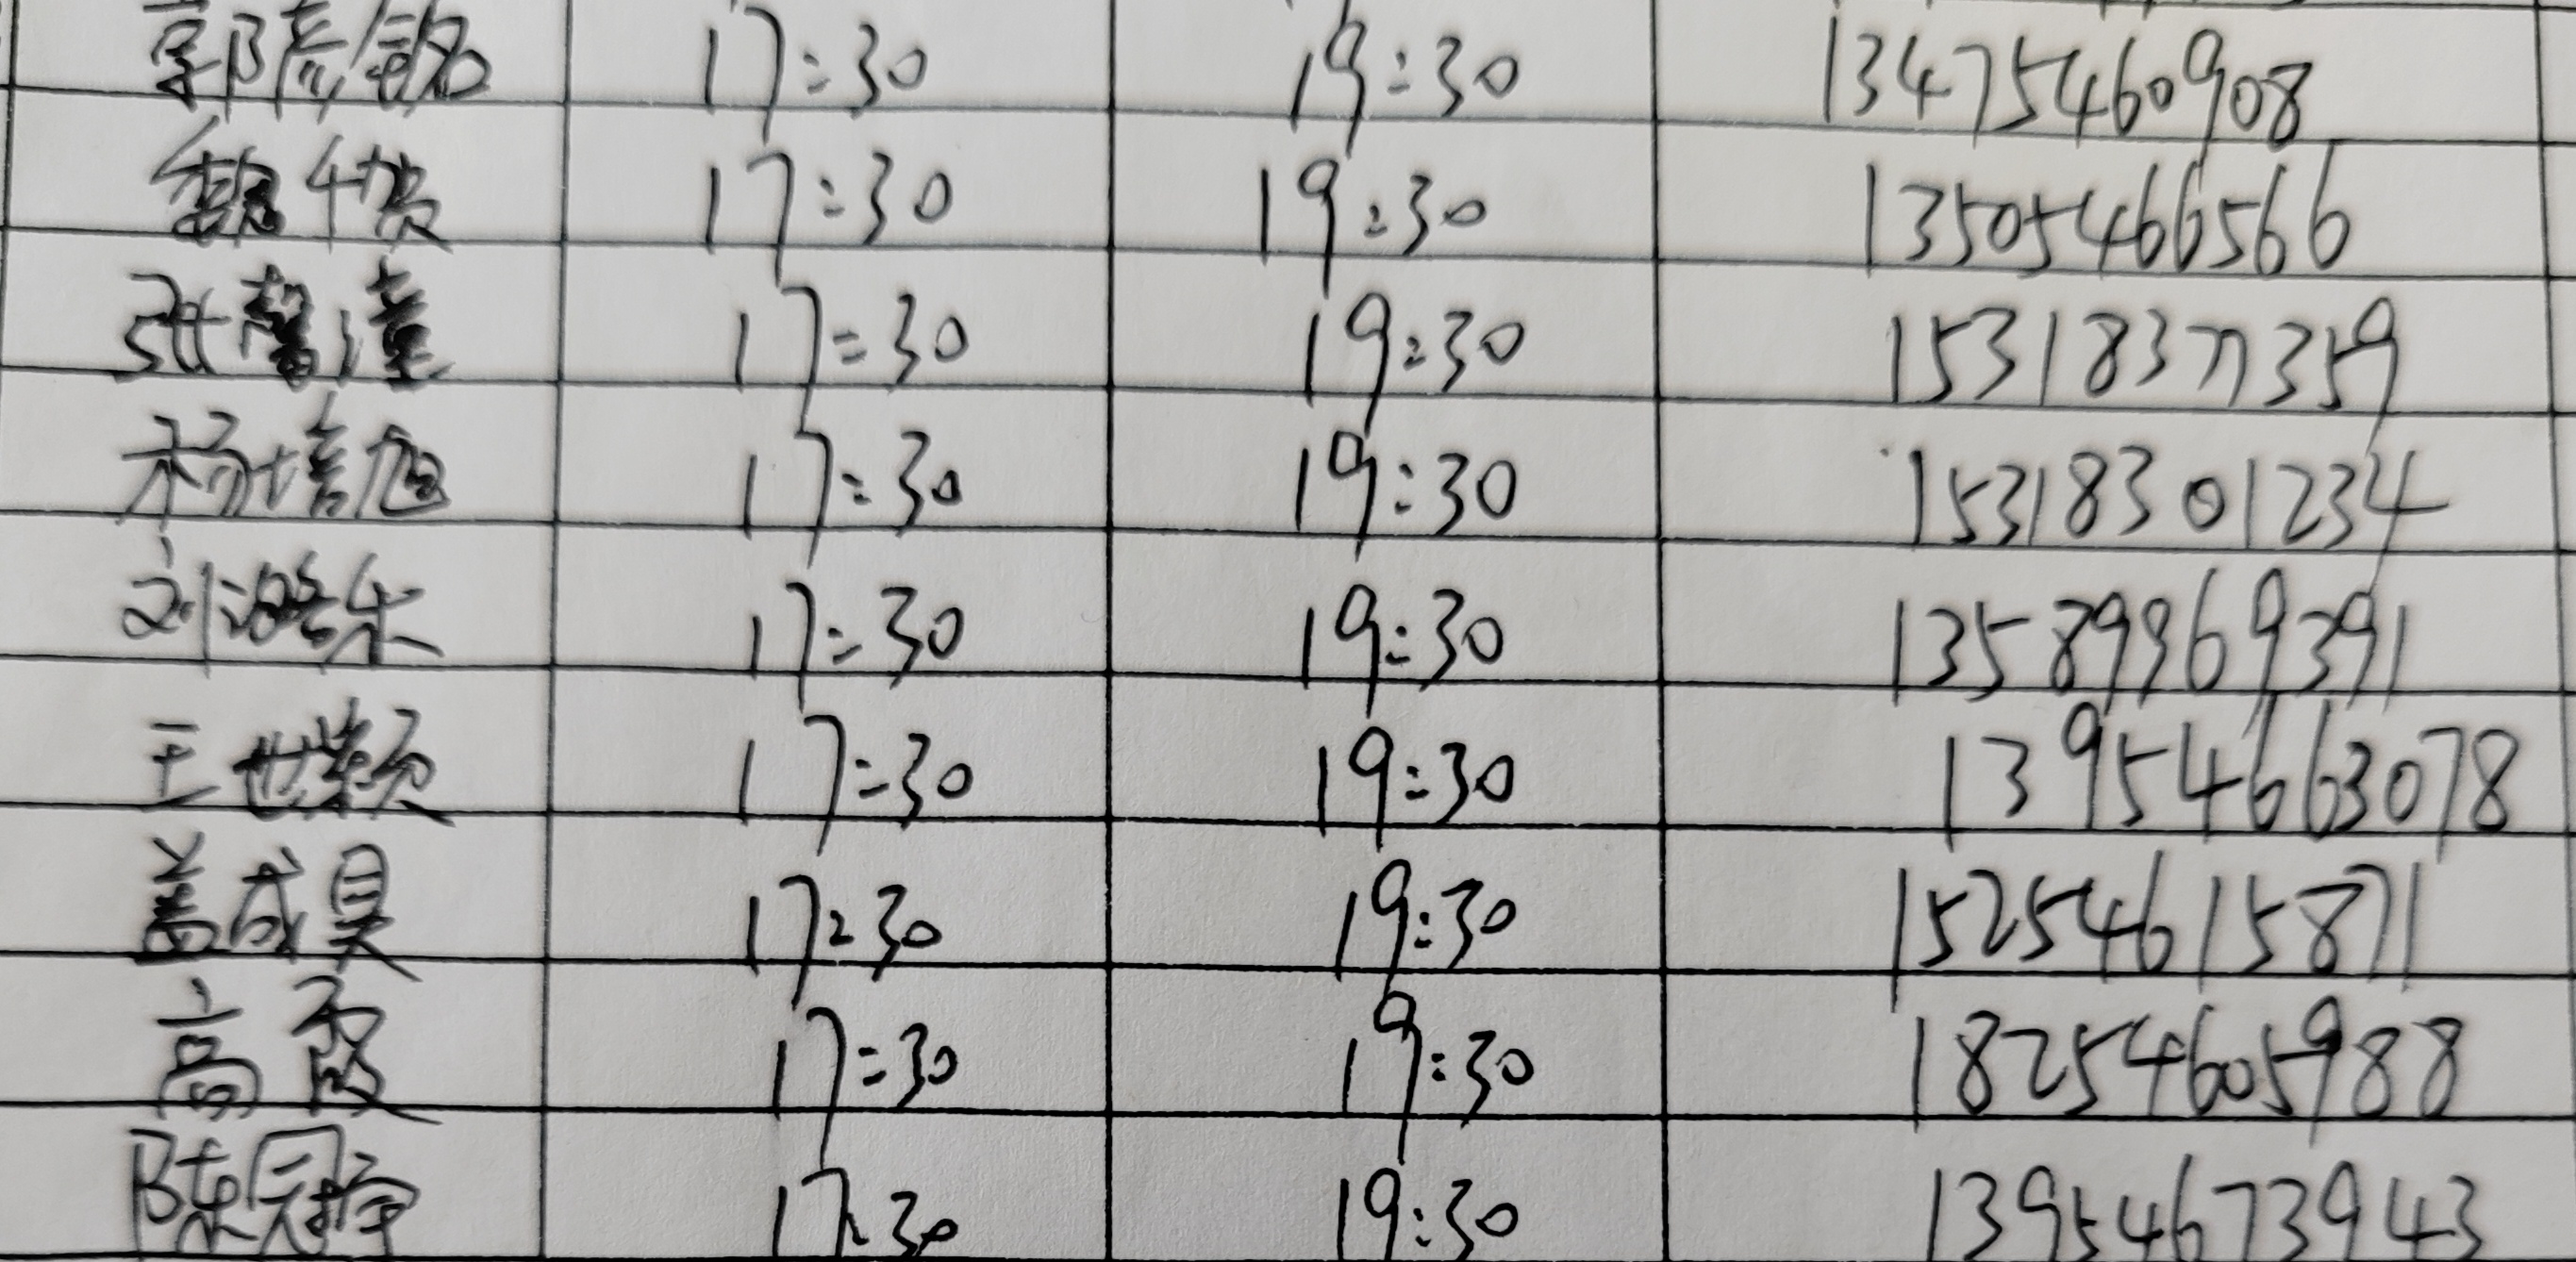 郭彦铭 17:30 19:30 13475460908
魏千贺 17:30 19:30 13505466566
张馨潼 17:30 19:30 15318377359
杨培旭 17:30 19:30 15318301234
刘 17:30 19:30 13589969391
王世颖 17:30 19:30 13954663078
盖成昊 17:30 19:30 15254615871
高霞 17:30 19:30 18254605988
陈冠 17:30 19:30 13954673943